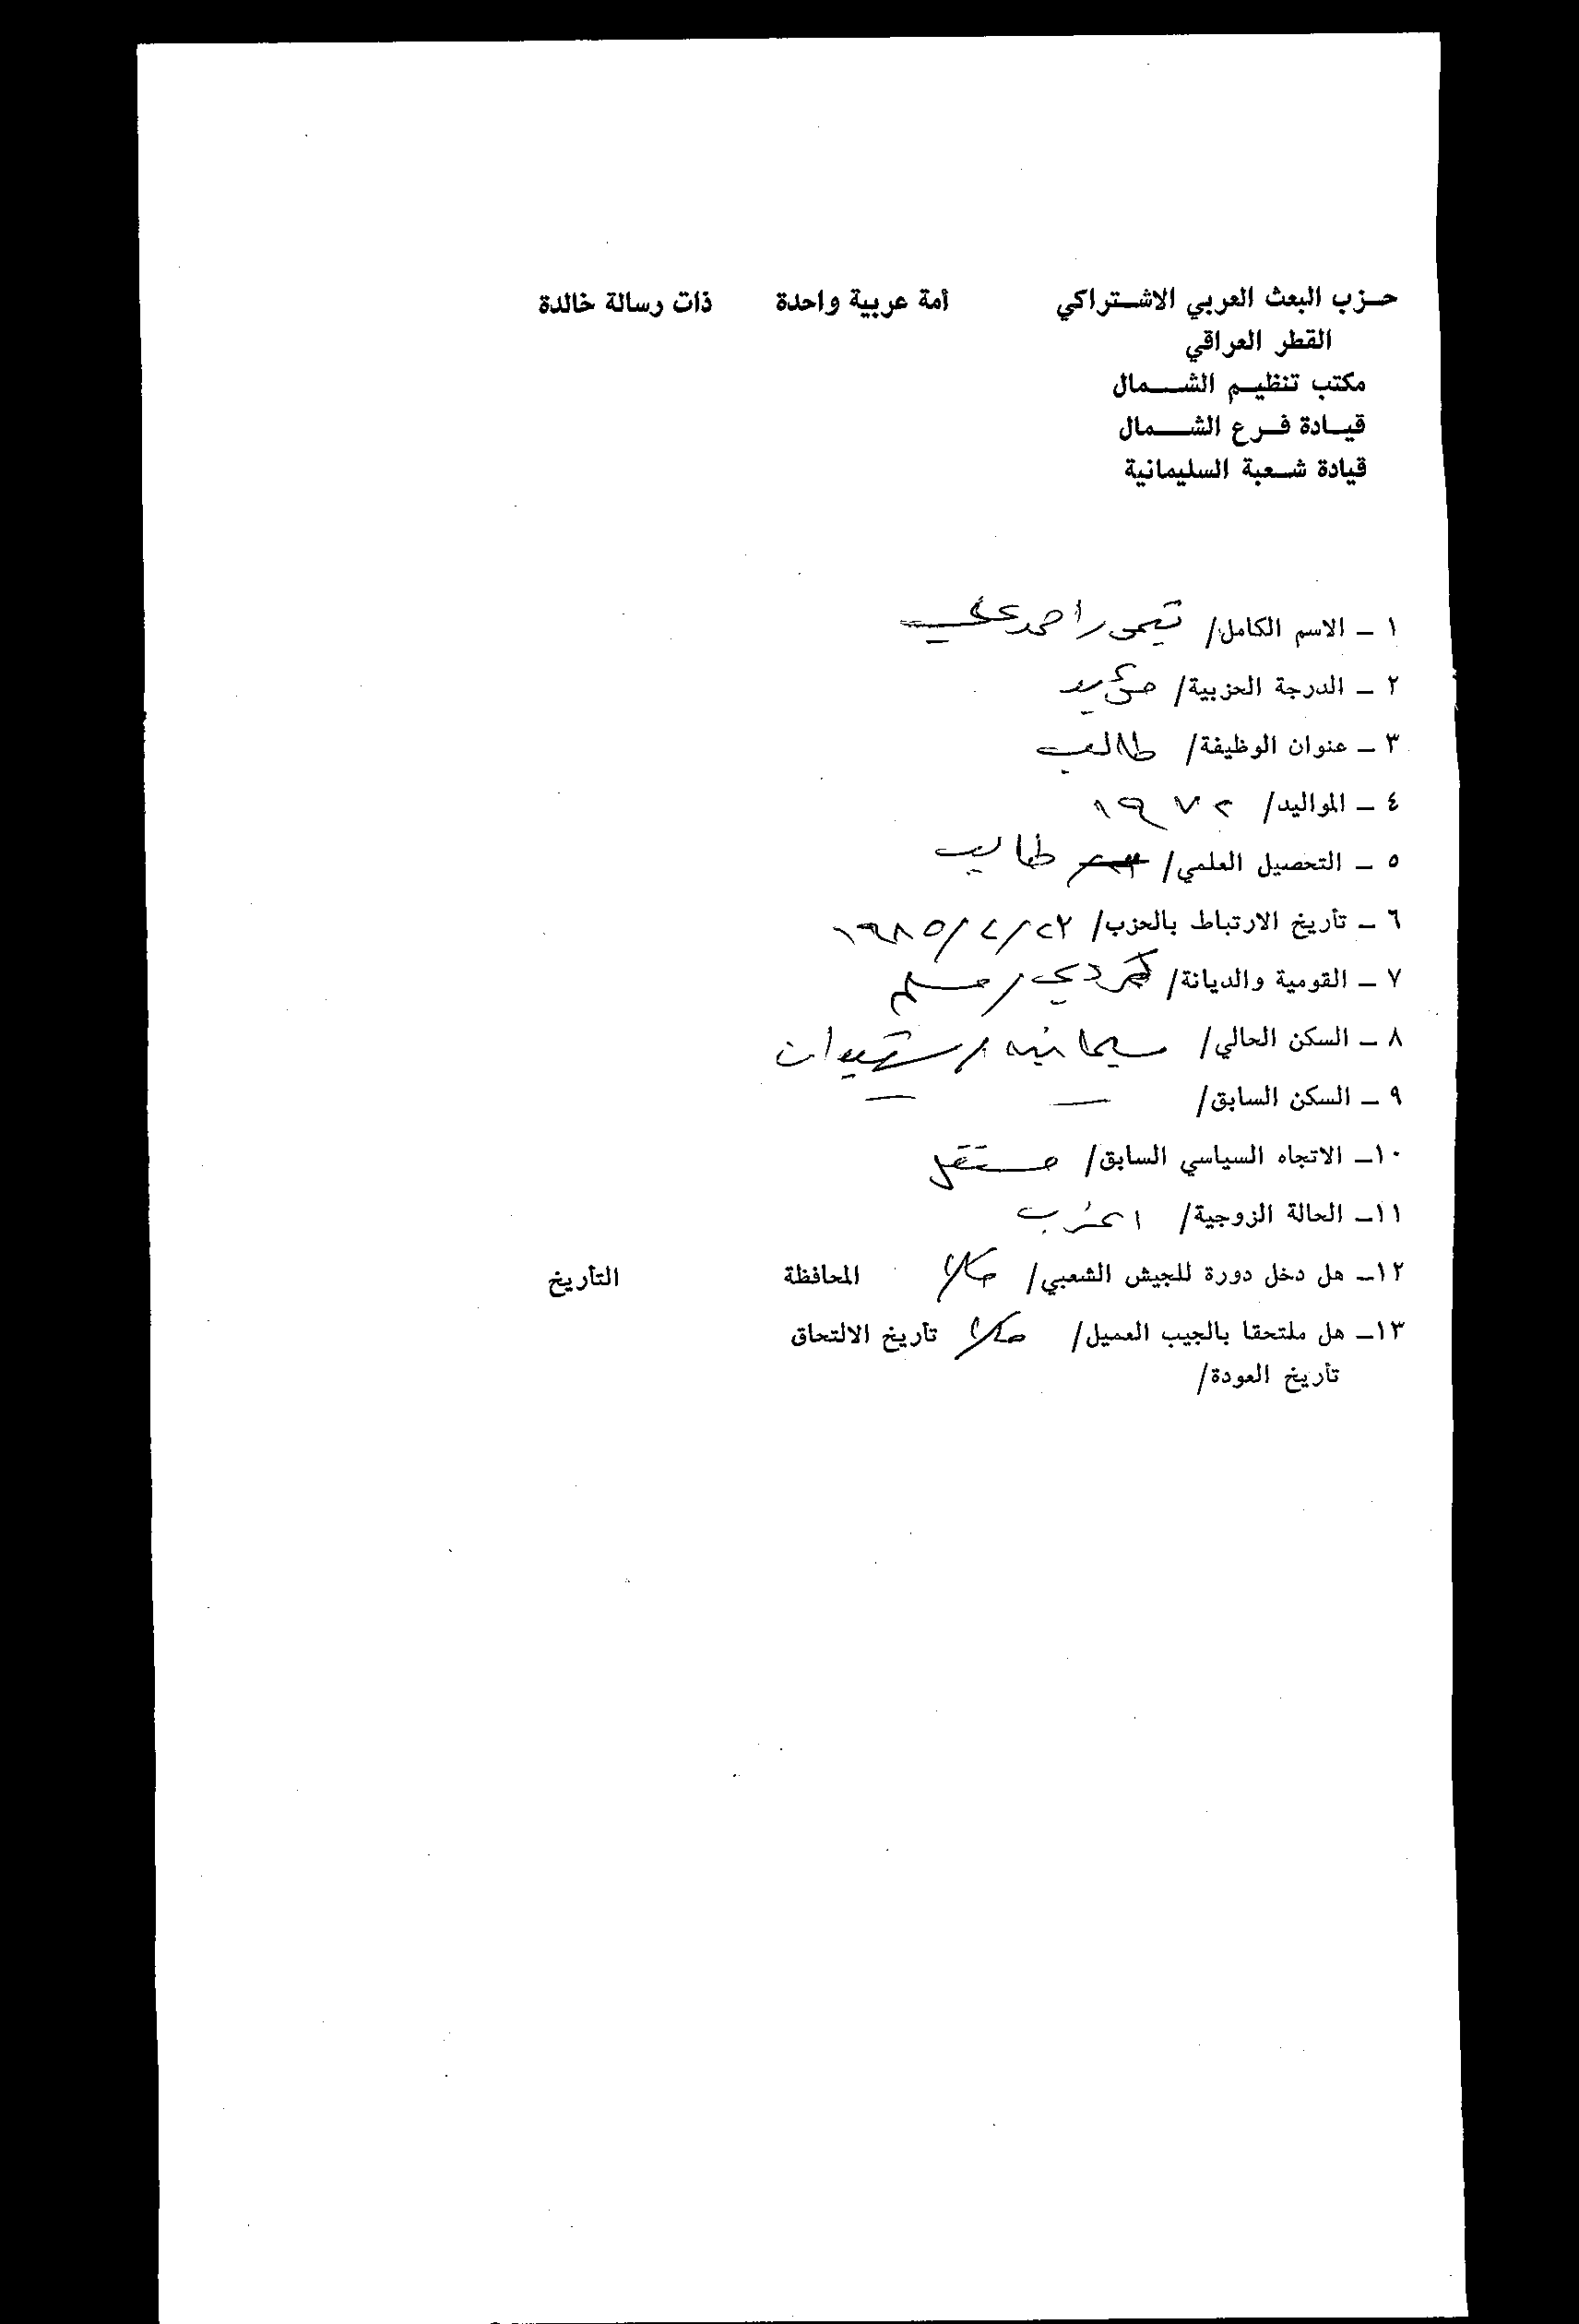 حزب البعث العربي الاشتراكي أمة عربية واحدة ذات رسالة خالدة
القطر العراقي
مكتب تنظيم الشمال
قيادة فرع الشمال
قيادة شعبة السليمانية
١ - الاسم الكامل/ احمد علي
٢ - الدرجة الحزبية/ مؤيد
٣ - عنوان الوظيفة/ طالب
٤ - المواليد/ ١٩٧٢
٥ - التحصيل العلمي/ طالب
٦ - تأريخ الارتباط بالحزب/ ١٩٨٥
٧ - القومية والديانة/ كردي / مسلم
٨ - السكن الحالي/ سليمانيه /
٩ - السكن السابق/ — —
١٠- الاتجاه السياسي السابق/ مستقل
١١- الحالة الزوجية/ اعزب
١٢- هل دخل دورة للجيش الشعبي/ كلا المحافظة التأريخ
١٣- هل ملتحقا بالجيب العميل/ كلا تأريخ الالتحاق
تأريخ العودة/